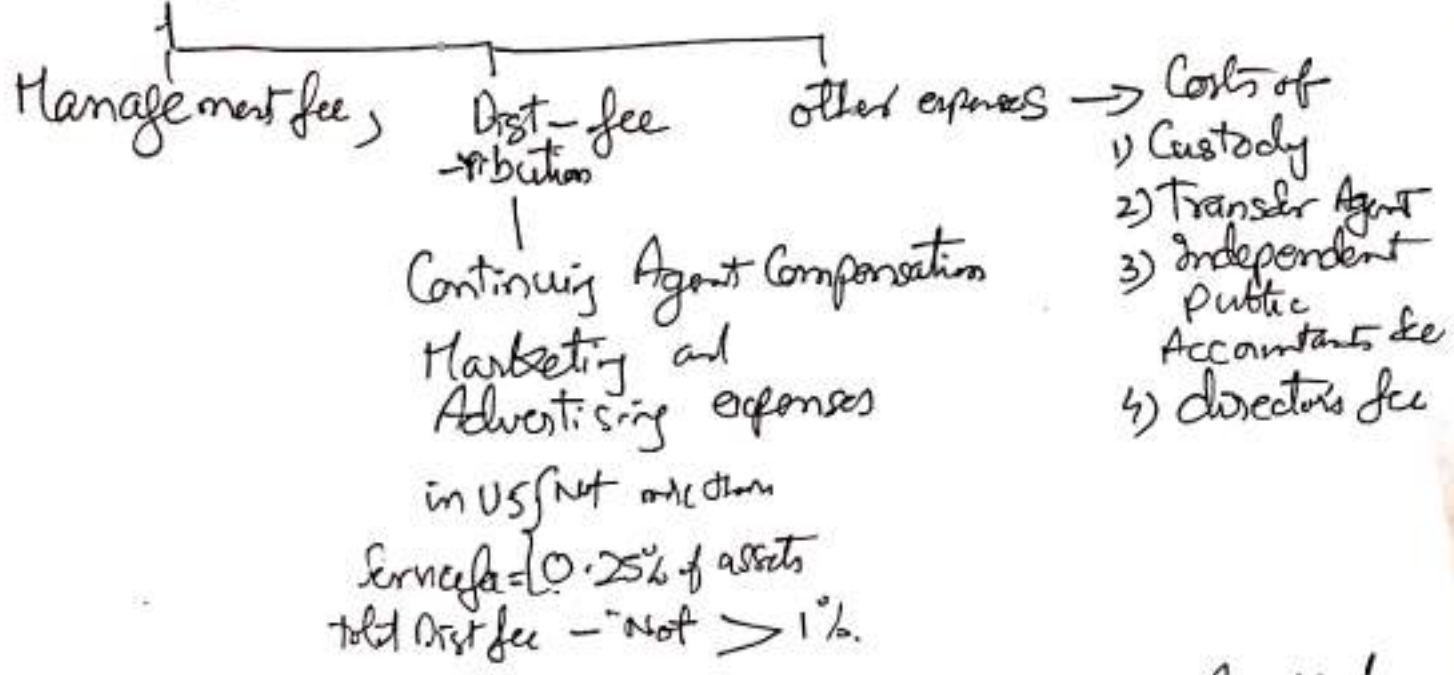 Management fee,
Dist- fee
-ribution
other expenses → Costs of
1) Custody
2) Transfer Agent
3) Independent
public
Accountants fee
4) director's fee
Continuing Agent Compensation
Marketing and
Advertising expenses
in US Not more than
Service fee = 0.25% of assets
total Dist fee - Not > 1%.